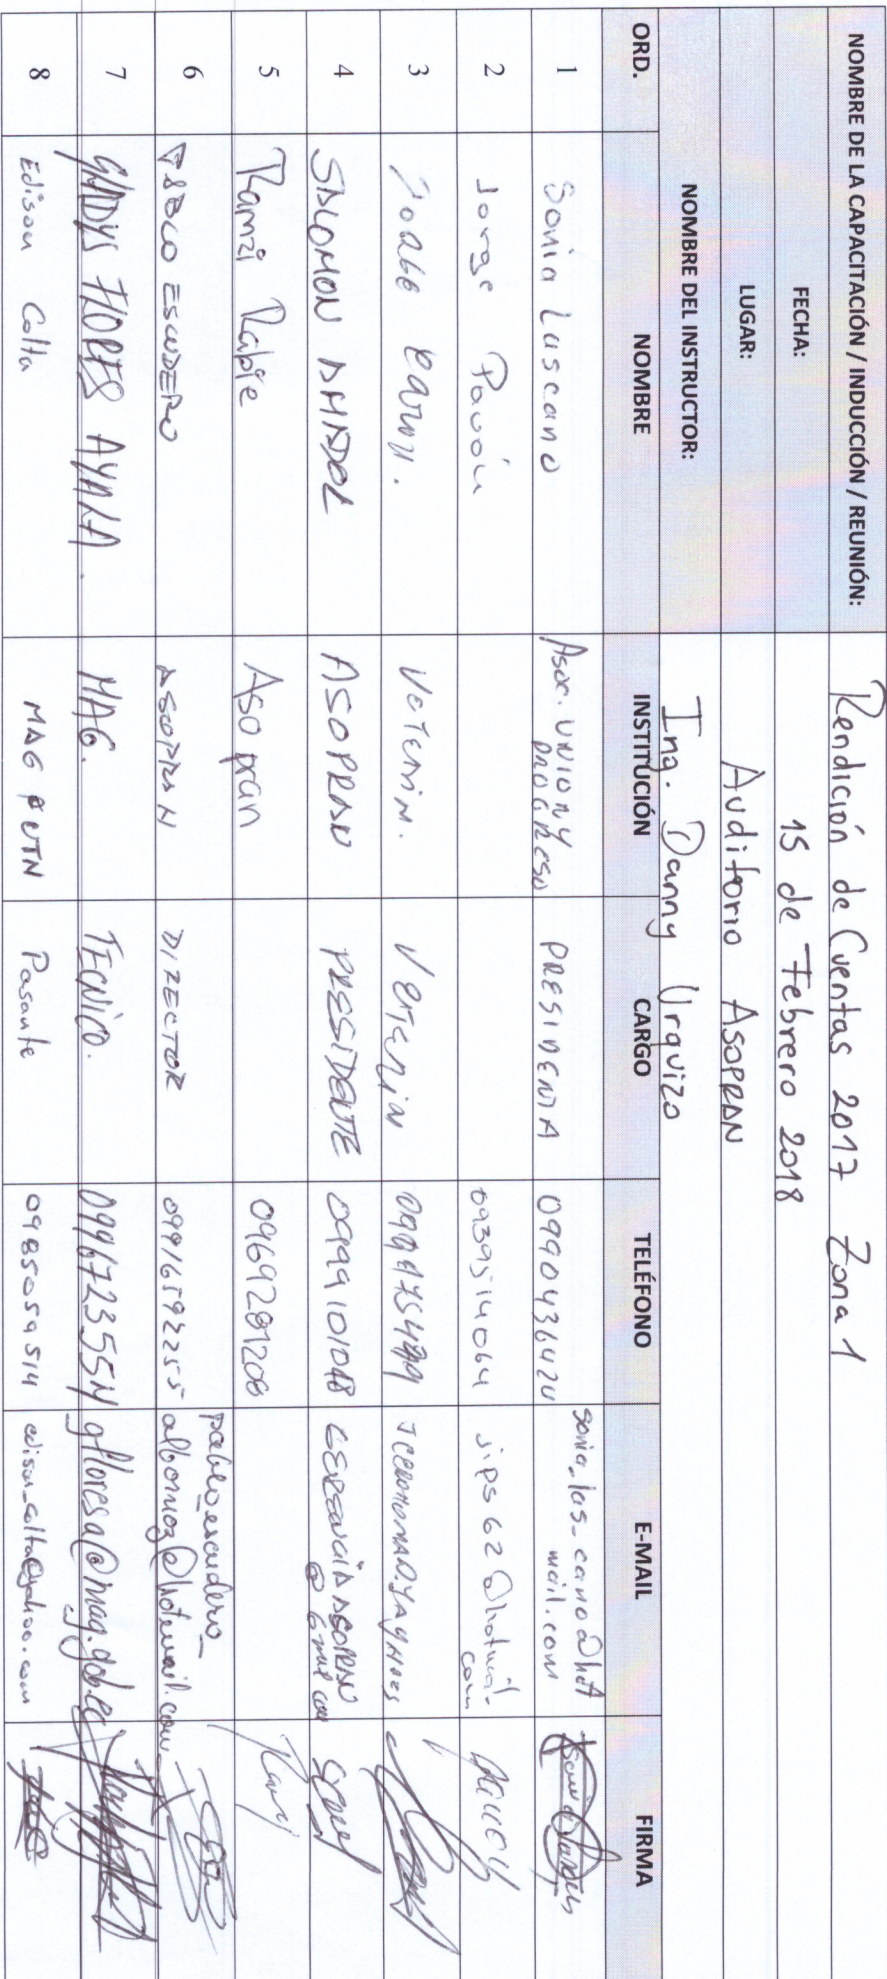 NOMBRE DE LA CAPACITACIÓN / INDUCCIÓN / REUNIÓN: Rendición de Cuentas 2017 Zona 1
FECHA: 15 de Febrero 2018
LUGAR: Auditorio ASOPRAN
NOMBRE DEL INSTRUCTOR: Ing. Danny Urquizo
ORD. NOMBRE INSTITUCIÓN CARGO TELÉFONO E-MAIL FIRMA
1 Sonia Luscano Asoc. UNION Y PROGRESO PRESIDENTA 0990436420 sonia_lus_cano@hotmail.com
2 Jorge Pavón 0939514064 jips62@hotmail.com
3 Veterin.
4 SALOMON AMADOR ASOPRAN PRESIDENTE 0999101048 GERENCIAASOPRAN@Gmail.com
5 Ramzi Rabie Asopran 0969281208
6 PABLO ESCUDERO ASOPRAN DIRECTOR pablo_escudero_albornoz@hotmail.com
7 GLADYS FLORES AYALA. MAG. TECNICO. gfloresa@mag.gob.ec
8 Edison Colta MAG UTN Pasante 0985059514 edison_colta@yahoo.com